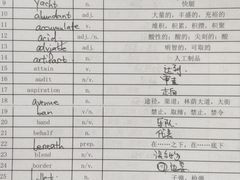 9 yacht n. 快艇
10 abundant adj. 大量的;丰盛的,充裕的
11 accumulate v. 堆积,积累,积攒;聚集
12 acid adj. 酸性的;酸的;尖刻的;酸
13 advisable adj. 明智的,可取的
14 artifact n. 人工制品
15 attain v. 达到
16 audit n./v. 审查
17 aspiration n.
18 avenue n. 途径,渠道;林荫大道,大街
19 ban n./v. 禁止,取缔,禁令
20 band n. 乐队
21 behalf n. 代表
22 beneath prep. 在……之下,在……底下
23 blend n/v.
24 border n/v.
25 n. 子弹,枪弹